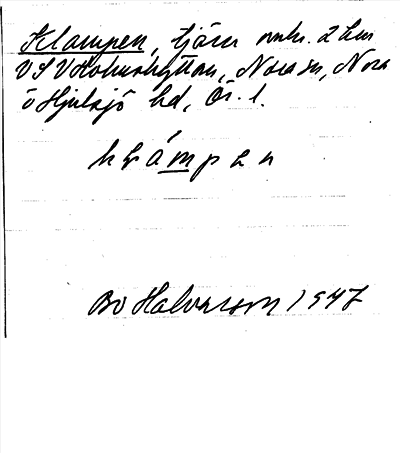 Klampen, tjärn omkr. 2 km
VSV Hokushyttan, Nora sn, Nora
o Hjulsjö hd, Ör. l.
klámpen
Bo Halvarson 1947